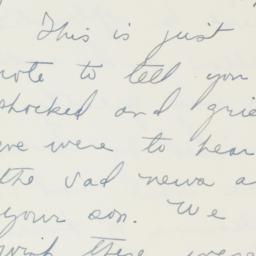 This is just
note to tell you
shocked and grie
we were to hear
the sad news a
your son. We
wish there were